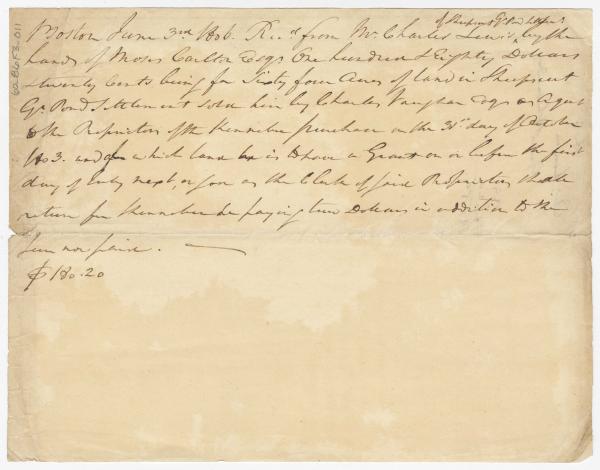 of Sheepscut Gt Pond Settlemt
Boston June 3rd 1806. Recd from Mr. Charles Lewis, by the
hands of Moses Carlton Esqr One hundred & Eighty Dollars
& twenty Cents being for Sixty four Acres of land in Sheepscut
Gt Pond Settlement sold him by Charles Vaughan Esqr as Agent
to the Proprietors of the Kennebec purchase on the 31st day of October
1803. and for which land he is to have a Grant on or before the first
day of July next, or soon as the Clerk of said Proprietors shall
return from Kennebec he paying two Dollars in addition to the
Sum now paid.
$ 180.20
62.86.F3.011